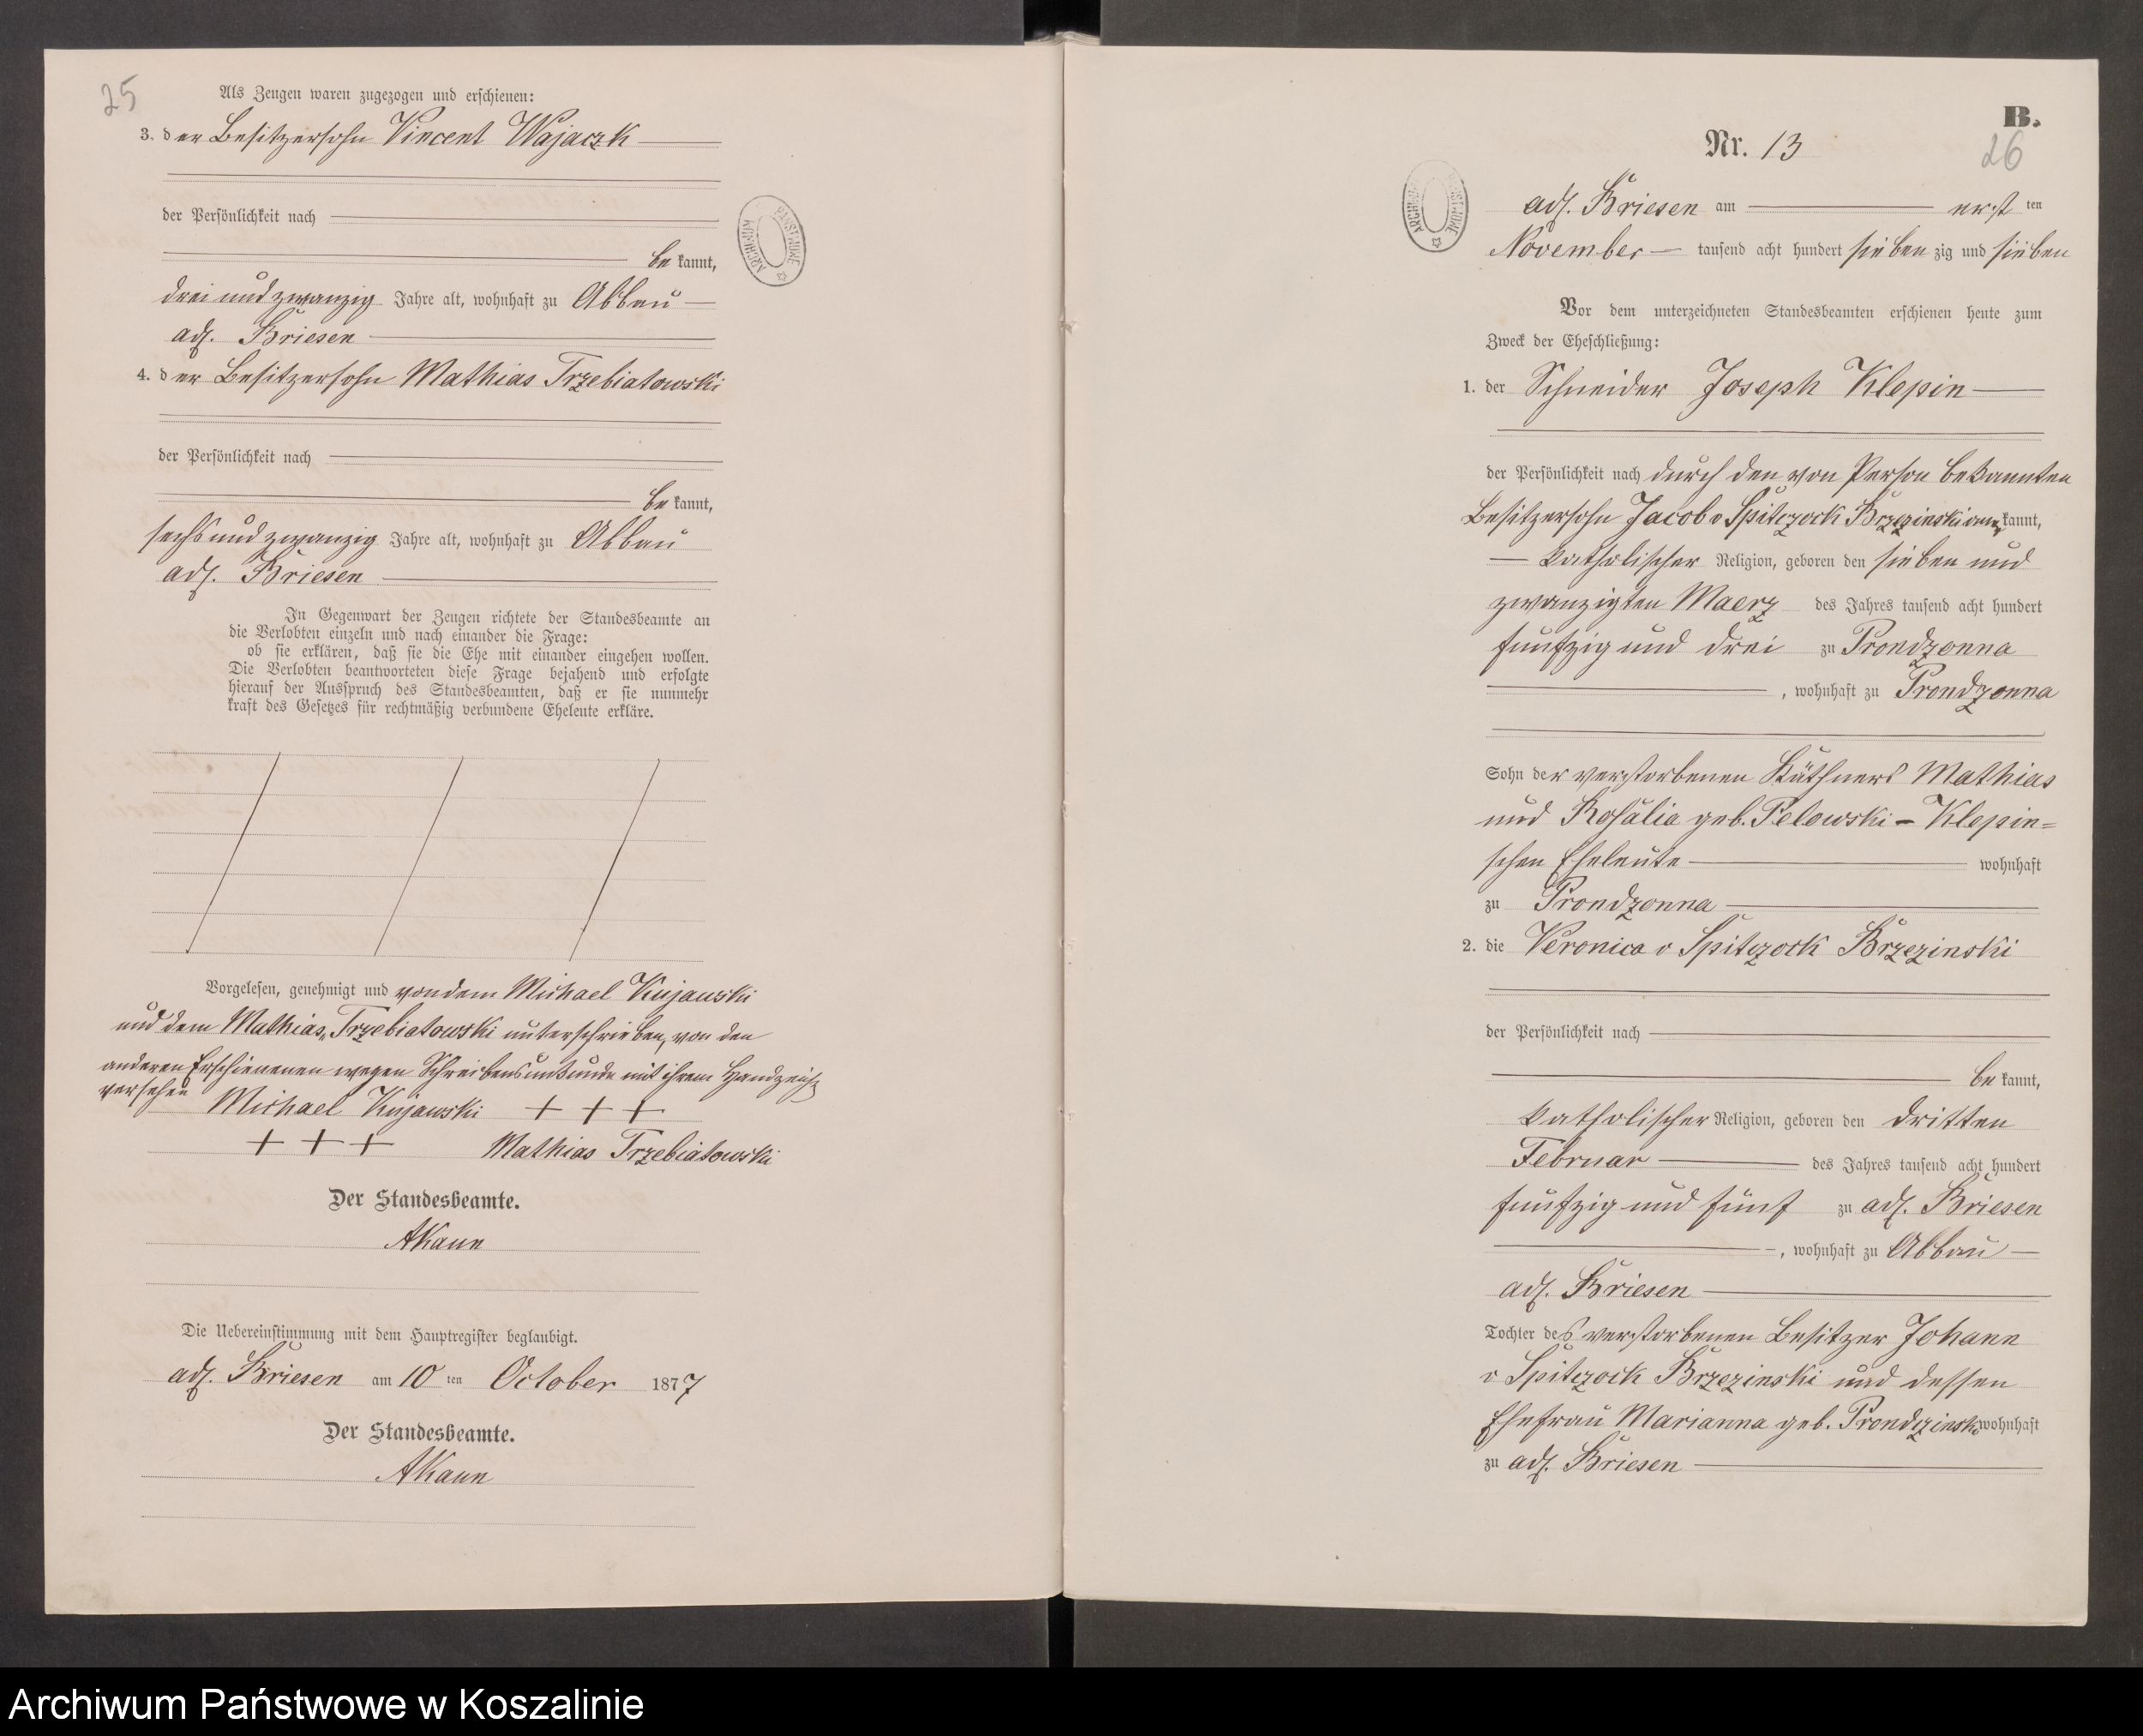 25
Als Zeugen waren zugezogen und erschienen:
3. der Besitzersohn Vincent Wajaczk
der Persönlichkeit nach
bekannt,
drei und zwanzig Jahre alt, wohnhaft zu Abbau
adl. Briesen
4. der Besitzersohn Mathias Trzebiatowski
der Persönlichkeit nach
bekannt,
sechs und zwanzig Jahre alt, wohnhaft zu Abbau
adl. Briesen
In Gegenwart der Zeugen richtete der Standesbeamte an
die Verlobten einzeln und nach einander die Frage:
ob sie erklären, daß sie die Ehe mit einander eingehen wollen.
Die Verlobten beantworteten diese Frage bejahend und erfolgte
hierauf der Ausspruch des Standesbeamten, daß er sie nunmehr
kraft des Gesetzes für rechtmäßig verbundene Eheleute erkläre.
Vorgelesen, genehmigt und von dem Michael Kujawski
und dem Mathias Trzebiatowski unterschrieben, von den
anderen Erschienenen wegen Schreibensunkunde mit ihrem Handzeich
versehen
Michael Kujawski + + +
+ + + Mathias Trzebiatowski
Der Standesbeamte.
AKaun
Die Uebereinstimmung mit dem Hauptregister beglaubigt.
adl. Briesen am 10 ten October 1877
Der Standesbeamte.
AKaun
B.
Nr. 13
26
adl. Briesen am erst ten
November tausend acht hundert siebenzig und sieben
Vor dem unterzeichneten Standesbeamten erschienen heute zum
Zweck der Eheschließung:
1. der Schneider Joseph Klepin
der Persönlichkeit nach durch den von Person bekannten
Besitzersohn Jacob v Spitczock Brzezinski anerkannt,
katholischer Religion, geboren den sieben und
zwanzigten Maerz des Jahres tausend acht hundert
funfzig und drei zu Prondzonna
, wohnhaft zu Prondzonna
Sohn der verstorbenen Käthners Mathias
und Rosalia geb. Pelowski - Klepin=
schen Eheleute wohnhaft
zu Prondzonna
2. die Veronica v Spitczock Brzezinski
der Persönlichkeit nach
bekannt,
katholischer Religion, geboren den dritten
Februar des Jahres tausend acht hundert
funfzig und fünf zu adl. Briesen
, wohnhaft zu Abbau
adl. Briesen
Tochter des verstorbenen Besitzer Johann
v Spitczock Brzezinski und dessen
Ehefrau Marianna geb. Prondzinski wohnhaft
zu adl. Briesen
Archiwum Państwowe w Koszalinie